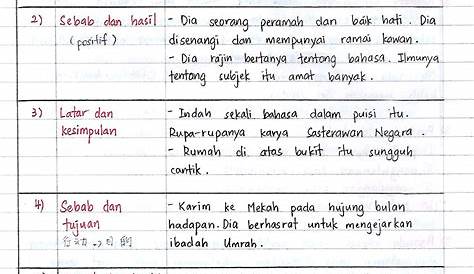 2) Sebab dan hasil - Dia seorang peramah dan baik hati. Dia
(positif) disenangi dan mempunyai ramai kawan.
- Dia rajin bertanya tentang bahasa. Ilmunya
tentang subjek itu amat banyak.
3) Latar dan - Indah sekali bahasa dalam puisi itu.
kesimpulan Rupa-rupanya karya Sasterawan Negara.
- Rumah di atas bukit itu sungguh
cantik.
4) Sebab dan - Karim ke Mekah pada hujung bulan
tujuan hadapan. Dia berhasrat untuk mengejarkan
ibadah Umrah.